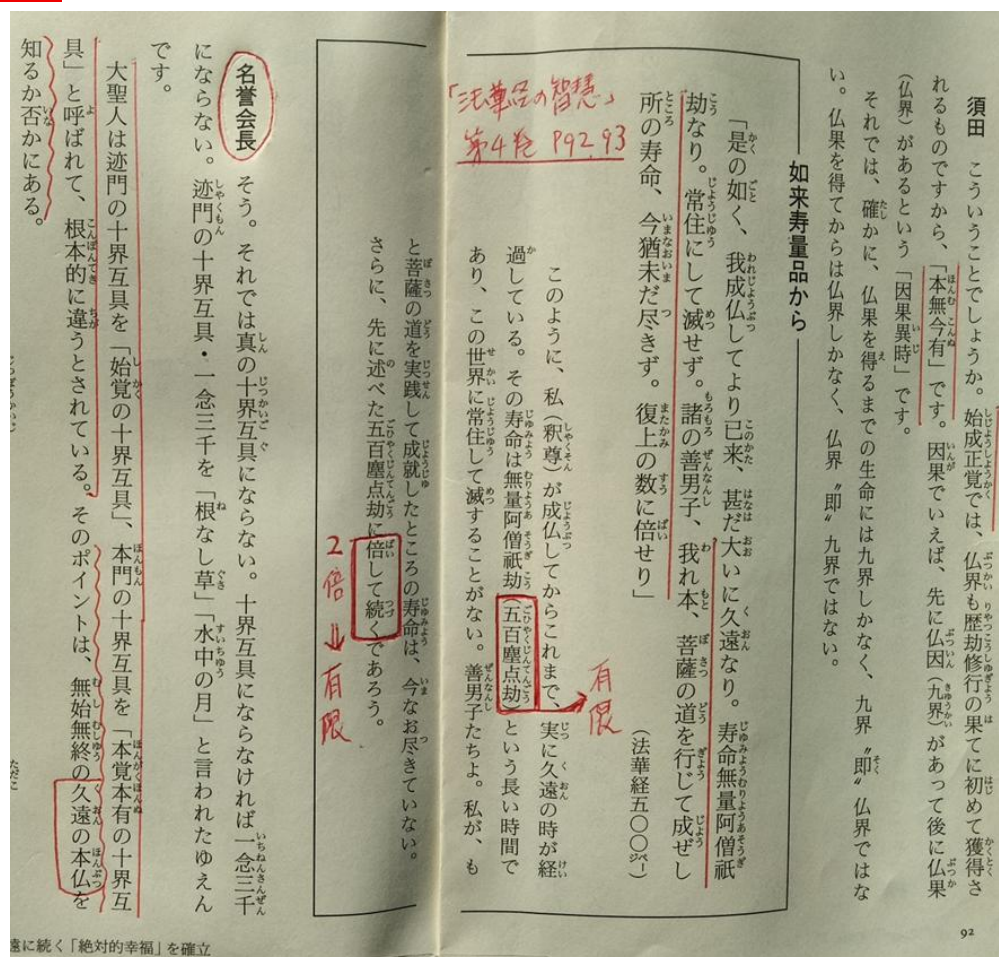 須田　こういうことでしょうか。始成正覚では、仏界も歴劫修行の果てに初めて獲得さ
れるものですから、「本無今有」です。因果でいえば、先に仏因（九界）があって後に仏果
（仏界）があるという「因果異時」です。
それでは、確かに、仏果を得るまでの生命には九界しかなく、九界〝即〟仏界ではな
い。仏果を得てからは仏界しかなく、仏界〝即〟九界ではない。
如来寿量品から
「是の如く、我成仏してより已来、甚だ大いに久遠なり。寿命無量阿僧祇
劫なり。常住にして滅せず。諸の善男子、我れ本、菩薩の道を行じて成ぜし
所の寿命、今猶未だ尽きず。復上の数に倍せり」
（法華経五〇〇㌻）
「法華経の智慧」
第4巻 P92.93
このように、私（釈尊）が成仏してからこれまで、実に久遠の時が経
過している。その寿命は無量阿僧祇劫（五百塵点劫）という長い時間で
あり、この世界に常住して滅することがない。善男子たちよ。私が、も
有限
と菩薩の道を実践して成就したところの寿命は、今なお尽きていない。
さらに、先に述べた五百塵点劫に倍して続くであろう。
2倍⇒有限
名誉会長　そう。それでは真の十界互具にならない。十界互具にならなければ一念三千
にならない。迹門の十界互具・一念三千を「根なし草」「水中の月」と言われたゆえん
です。
大聖人は迹門の十界互具を「始覚の十界互具」、本門の十界互具を「本覚本有の十界互
具」と呼ばれて、根本的に違うとされている。そのポイントは、無始無終の久遠の本仏を
知るか否かにある。
92
遠に続く「絶対的幸福」を確立